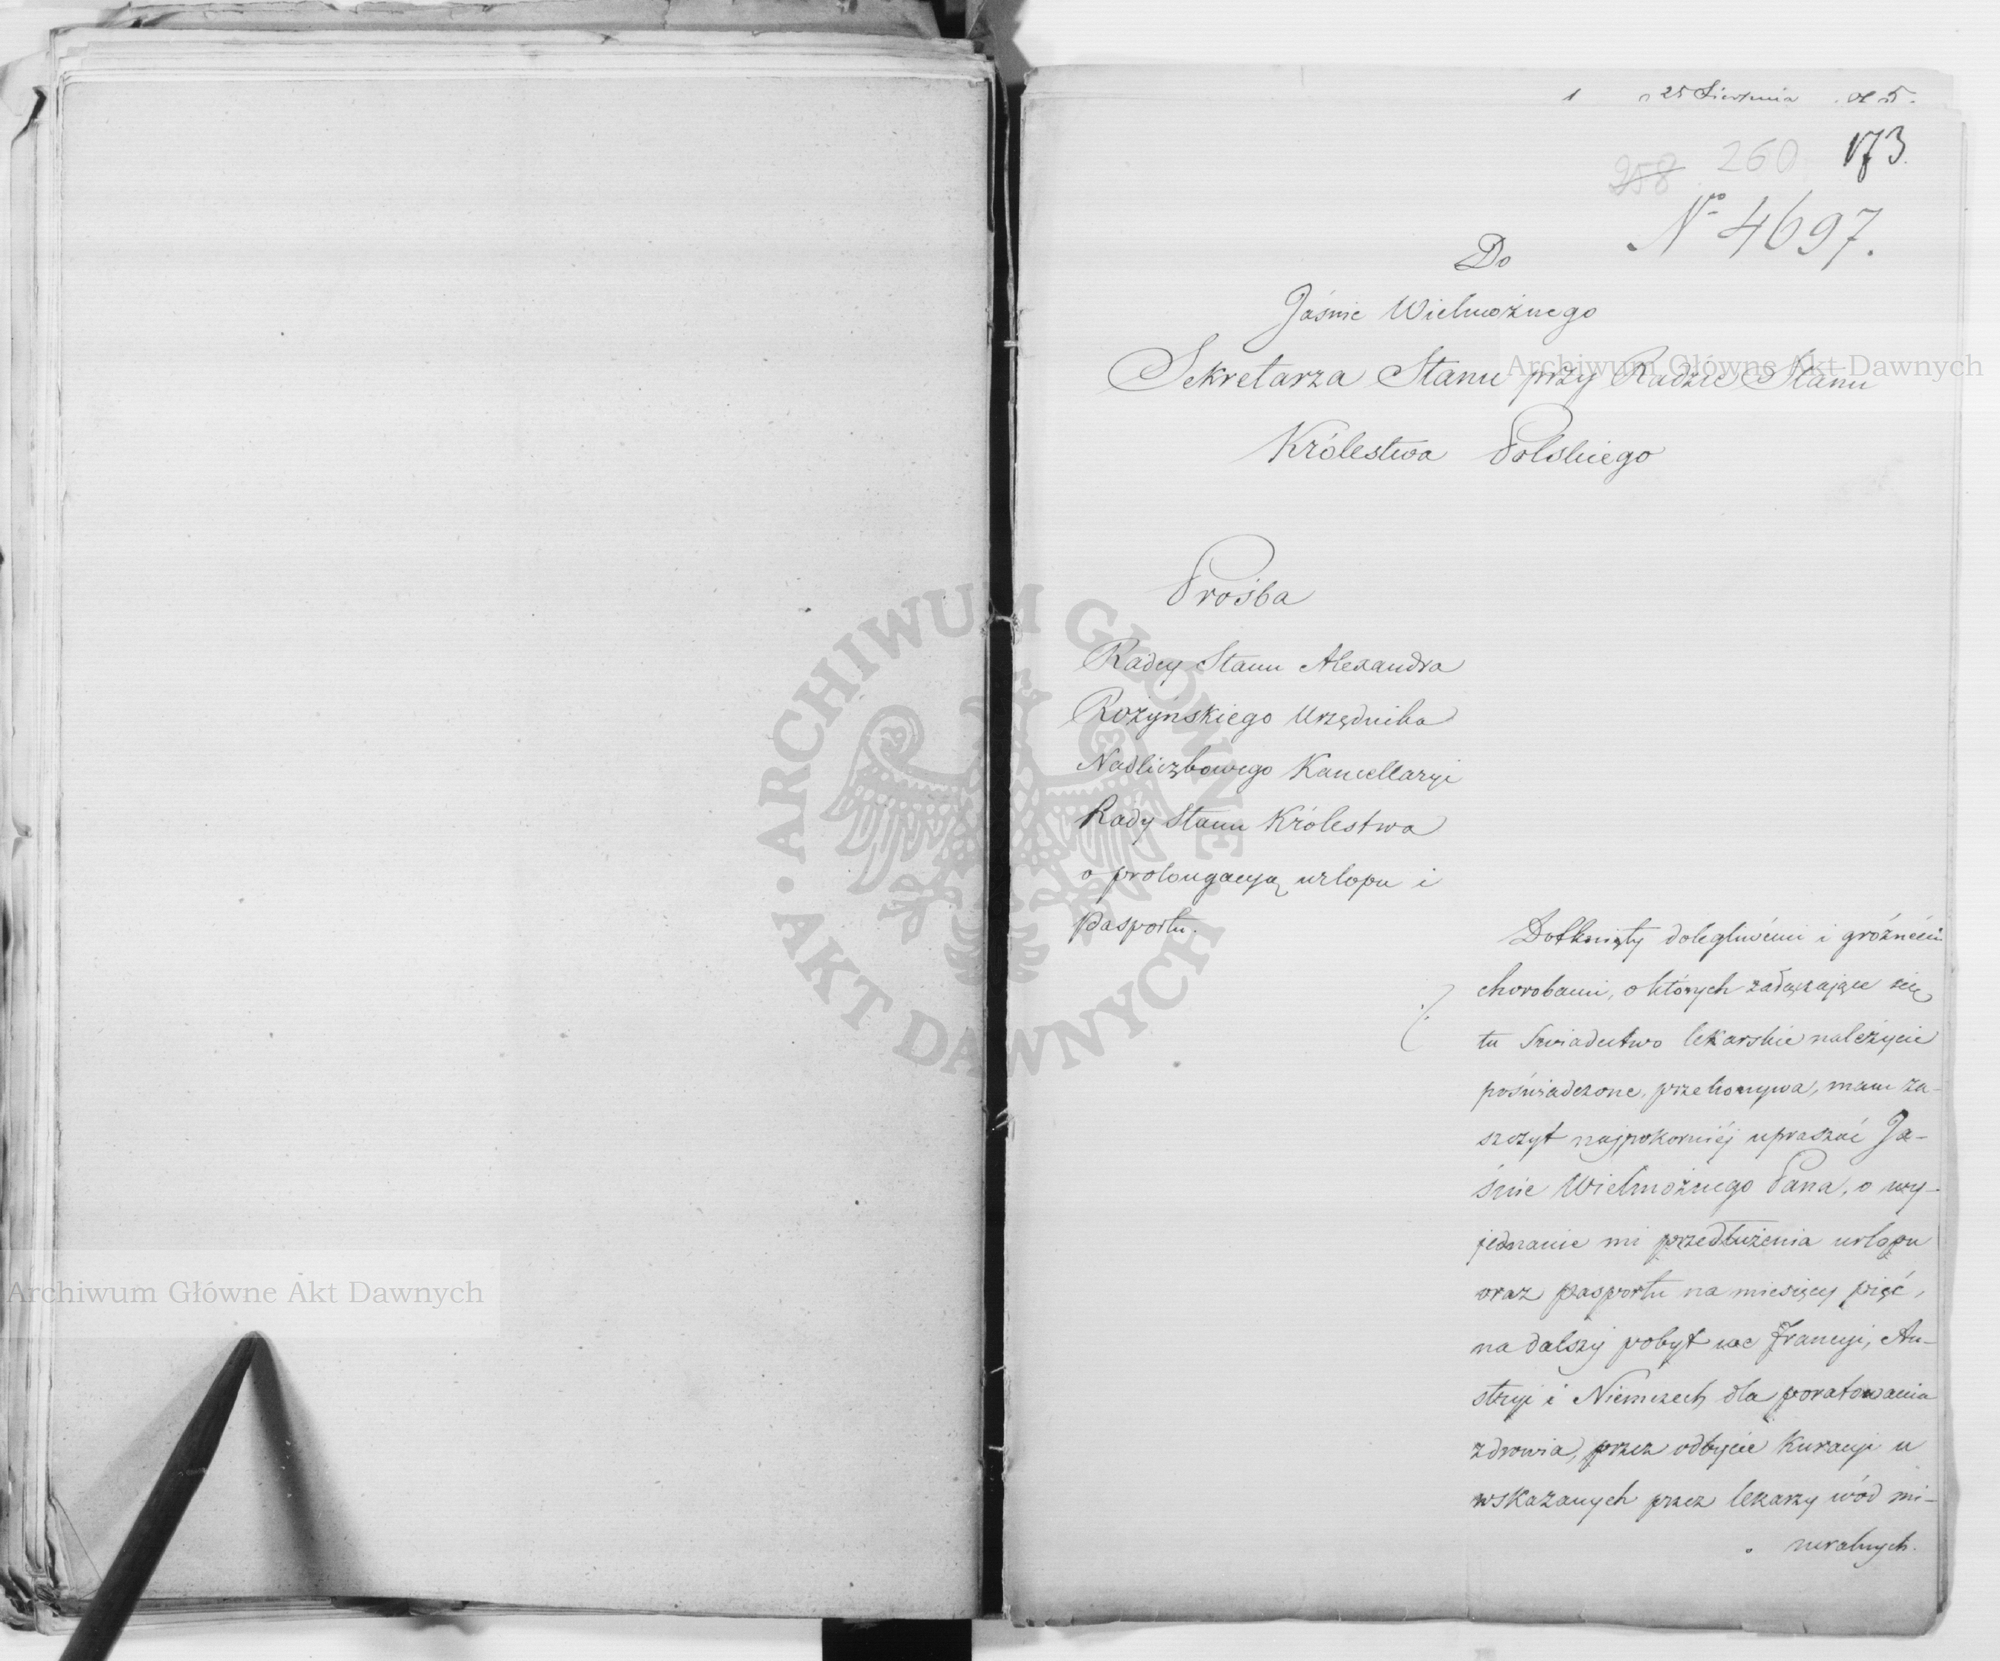 25 Sierpnia
258 260 173.
No 4697.
Do
Jaśnie Wielmożnego
Sekretarza Stanu przy Radzie Stanu
Królestwa Polskiego
Prośba
Radcy Stanu Alexandra
Rożyńskiego Urzędnika
Nadliczbowego Kancellaryi
Rady Stanu Królestwa
o prolongacyą urlopu i
Pasportu.
Dotknięty dolegliwemi i groźnemi
chorobami, o których załączające się
tu świadectwo lekarskie należycie
poświadczone, przekonywa, mam za-
szczyt najpokorniéj upraszać Ja-
śnie Wielmożnego Pana, o wy-
jednanie mi przedłużenia urlopu
oraz pasportu na miesięcy pięć,
na dalszy pobyt we Francyi, Au-
stryi i Niemczech dla poratowania
zdrowia, przez odbycie kuracyi u
wskazanych przez lekarzy wód mi-
neralnych.
Archiwum Główne Akt Dawnych
Archiwum Główne Akt Dawnych
ARCHIWUM GŁÓWNE AKT DAWNYCH